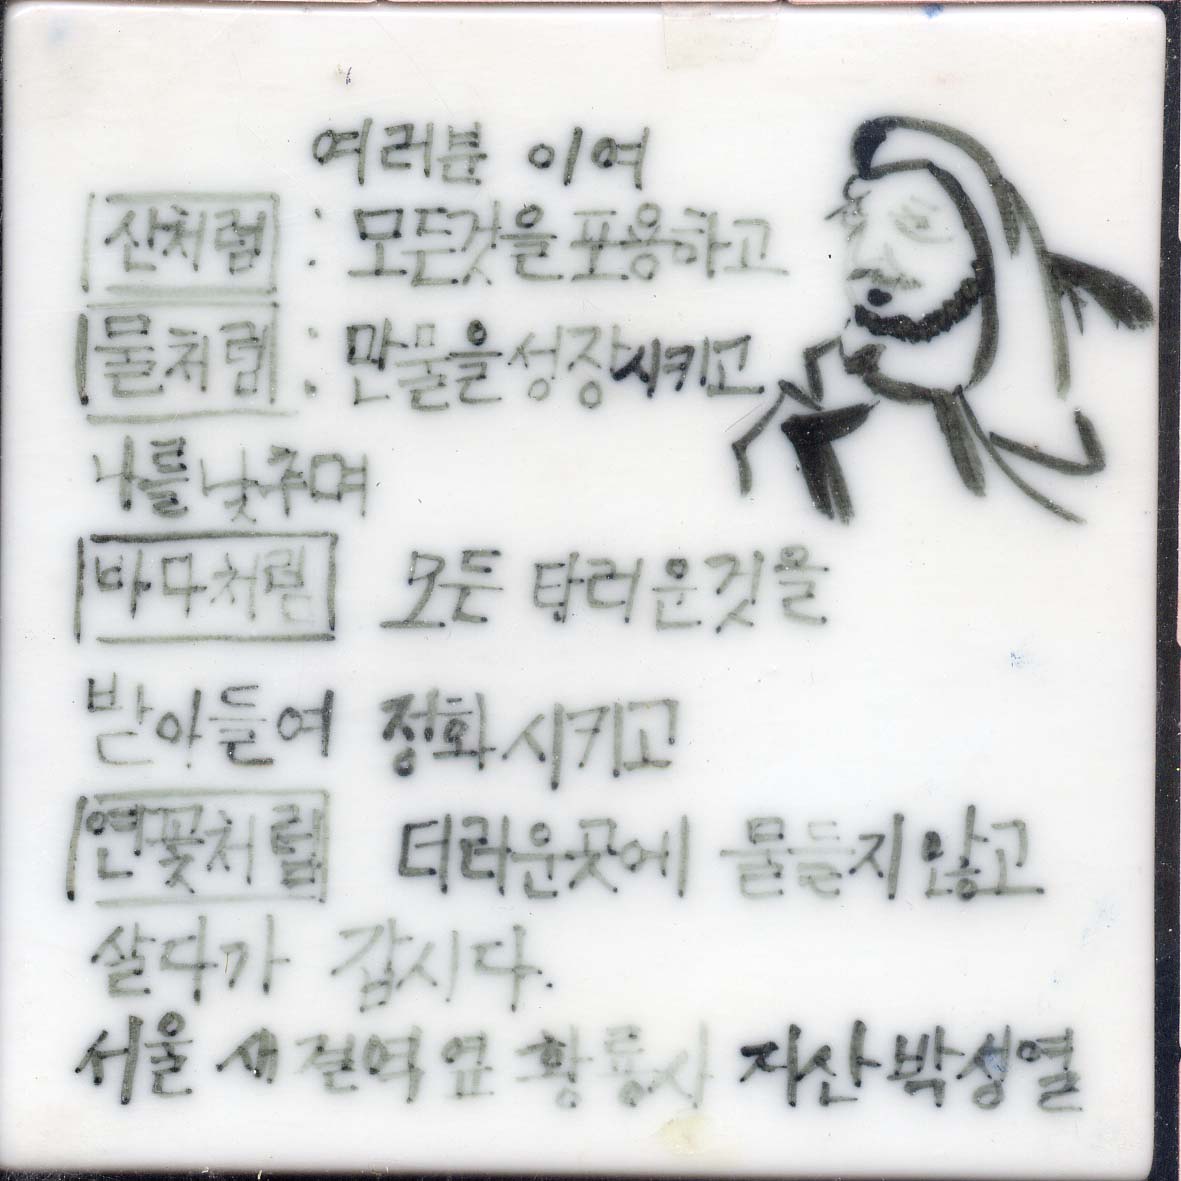 여러분 이여
산처럼 : 모든것을 포용하고
물처럼 : 만물을 성장시키고
나를 낮추며
바다처럼 모든 다러운것을
받아들여 정화시키고
연꽃처럼 더라운곳에 물들지않고
살다가 갑시다.
서울 새절역 옆 황룡사 지산박성열